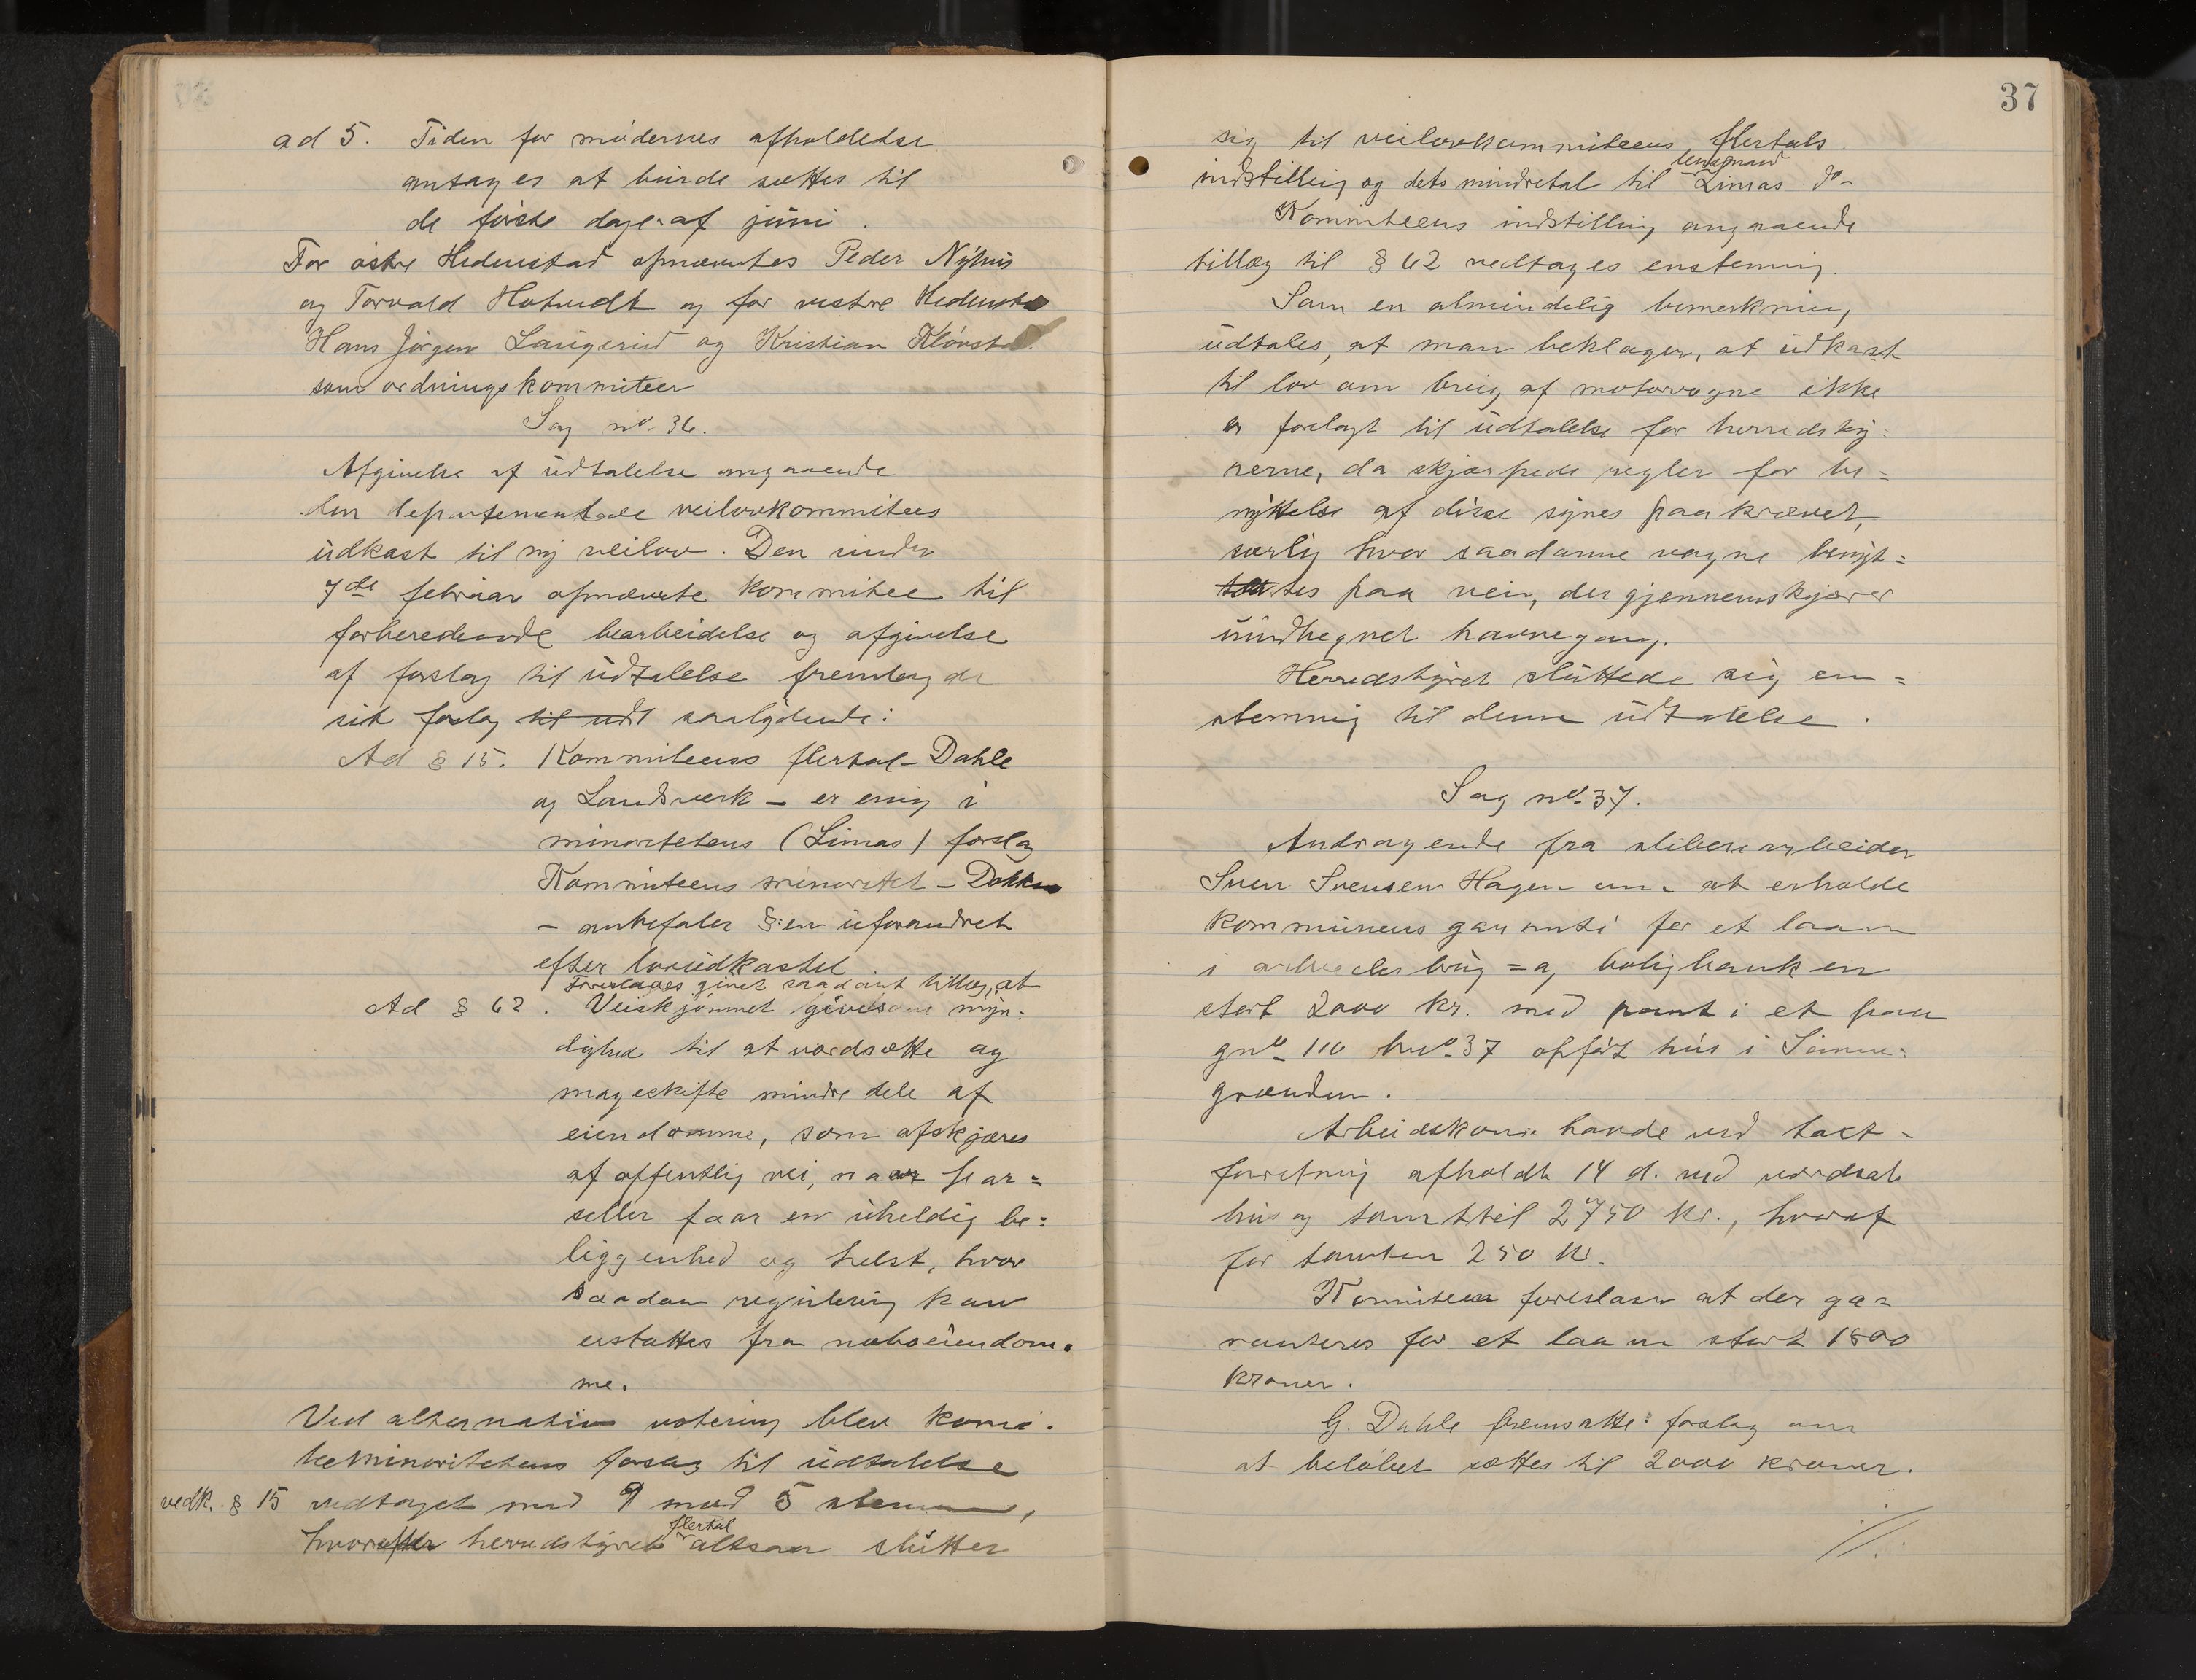 ad 5. Tiden for mødernes afholdelse
antages at burde sættes til
de første dage af juni.
For østre Hedenstad opnævntes Peder Nyhus
og Torvald Hotvedt og for vestre Hedensta
Hans Jørgen Laugerud og Kristian Kløvsta
som ordningskommiteer
Sag no. 36.
Afgivelse af udtalelse angaaende
den departementale veilovkommitees
udkast til ny veilov. Den under
7de februar opnævnte kommitee til
forberedende bearbeidelse og afgivelse
af forslag til udtalelse fremlagde
sit forslag til udt saalydende:
Ad § 15. Kommiteens flertal – Dahle
og Landsverk – er enig i
minoritetens (Limas) forslag
Kommiteens minoritet – Dokken
– anbefaler §:en uforandret
efter lovudkastet.
Foreslaaes givet saadant tillæg, at
Ad § 62. Veiskjønnet gives myn:
dighed til at værdsætte og
mageskifte mindre dele af
eiendomme, som afskjæres
af offentlig vei, naar par=
seller faar en uheldig be:
liggenhed og helst, hvor
saadan regulering kan
erstattes fra naboeiendom.
me.
Ved alternativ votering blev komi.
teeminoritetens forslag til udtalelse
vedk. § 15 vedtaget med 9 mod 5 stemmer,
flertal
hvorefter herredstyrets altsaa slutter
37
sig til veilovkommiteens flertals
lensmand
indstilling og dets mindretal til Limas do-
Kommiteens indstilling angaaende
tillæg til § 62 vedtages enstemmig.
Som en almindelig bemerkning
udtales, at man beklager, at udkast
til lov om brug af motorvogne ikke
er forelagt til udtalelse for herredsty:
rerne, da skjærpede regler for be=
nyttelse af disse synes paakrævet,
særlig hvor saadanne vogne benyt=
tes paa vein, der gjennemskjærer
uindhegnet havnegang.
Herredstyret sluttede sig en=
stemmig til denne udtalelse.
Sag no. 37.
Andragende fra sliberiarbeider
Sven Svensen Hagen om at erholde
kommunens garanti for et laan
i arbeiderbrug= og boligbanken
stort 2000 kr. med pant i et paa
gno. 110 bno. 37 opført hus i
grænden.
Arbeidskom. havde ved taxt=
foretning afholdt 14 d. md værdsat
hus og tomt til 2750 kr., hvoraf
for tomten 250 kr.
Komiteen foreslaar at der ga=
ranteres for et laan stort 1800
kroner.
G. Dahle fremsatte forslag om
at beløbet sættes til 2000 kroner.
·/.